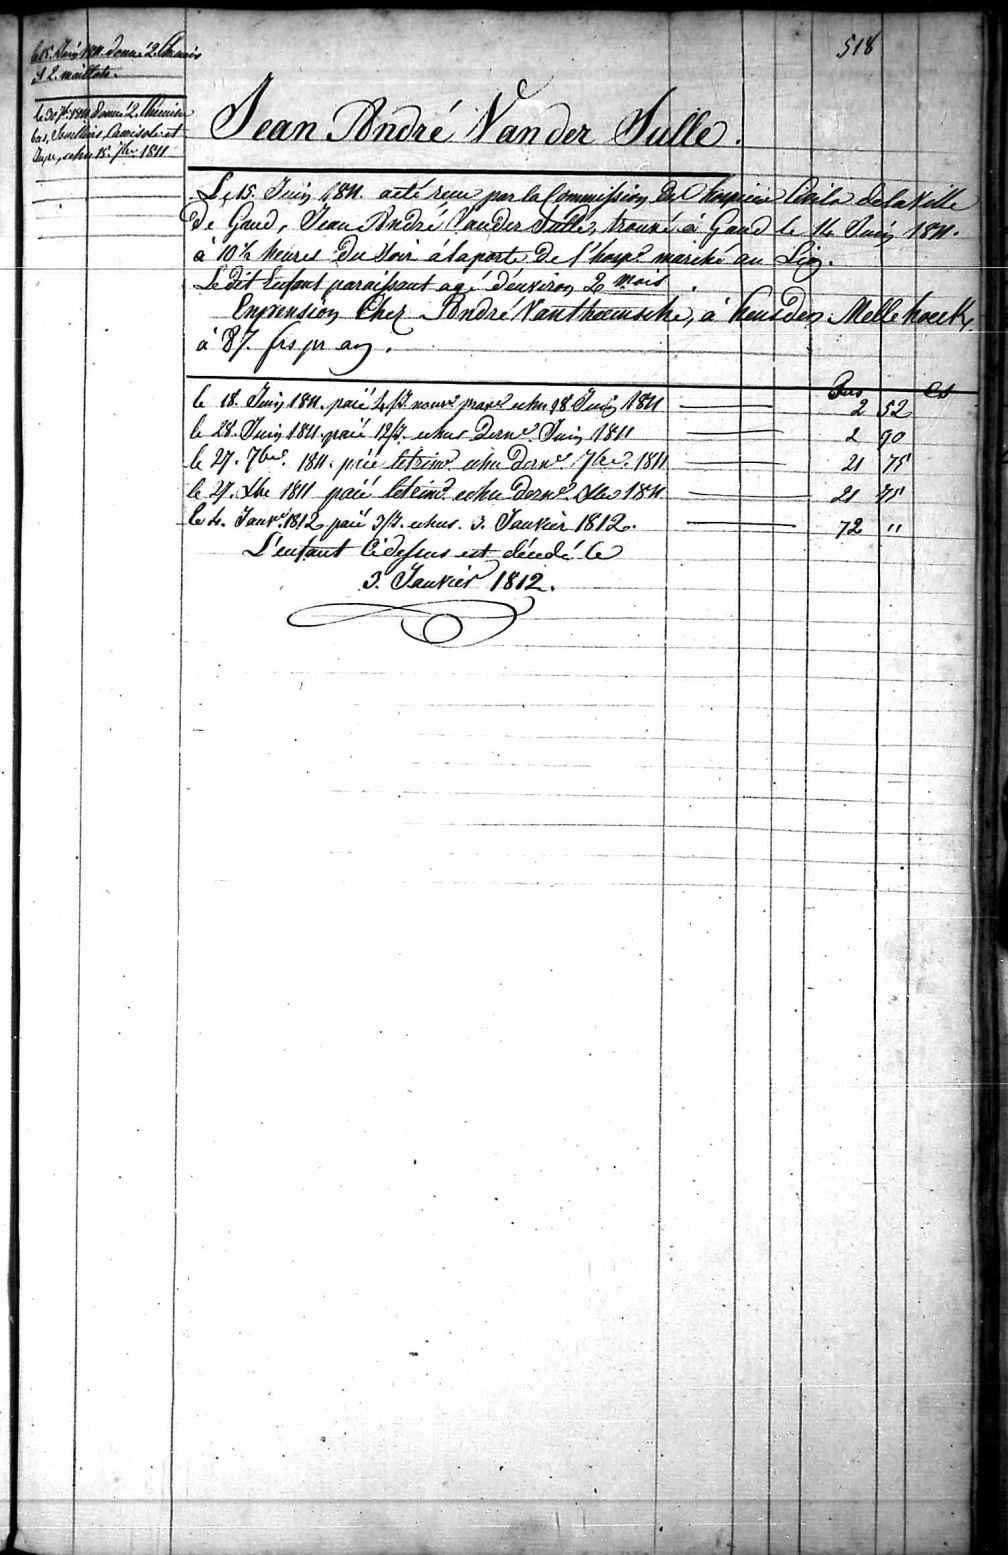 518
le 15. Juin 1811. donné 2. Chemis
et 2. maillots.
le 30 7bre 1811 donné 2. Chemise
bas, Camisole et
echu 15. 7bre 1811
Jean André Vander Tulle.
Le 15. Juin 1811. a eté recu par la Commission des hospices Civils de la Ville
de Gand, Jean André Vander Tulle, trouvé à Gand le 14 Juin 1811.
à 10½ heures du Soir à la porte de l'hosp.e marché au Lin.
Le dit Enfant paraissant agé d'environ 2 mois.
En pension Chez André Vanthoemsche, à heusden. Melle hoeck,
à 87. frs pr an.
Frs Cs
le 18. Juin 1811. paié 4. echu 18 Juin 1811 2 52
le 28. Juin 1811. paié 12 echus Dern.r Juin 1811 2 90
le 27. 7bre. 1811. paié le trim.e echu Dern.r 7bre. 1811 21 75
le 27. Xbre 1811 paié le trim.e echu dern.r Xbre 1811 21 75
le 4. Janv.r 1812 paié 3 echus. 3. Janvier 1812. 72 "
L'enfant Cidessus est décedé le
3. Janvier 1812.